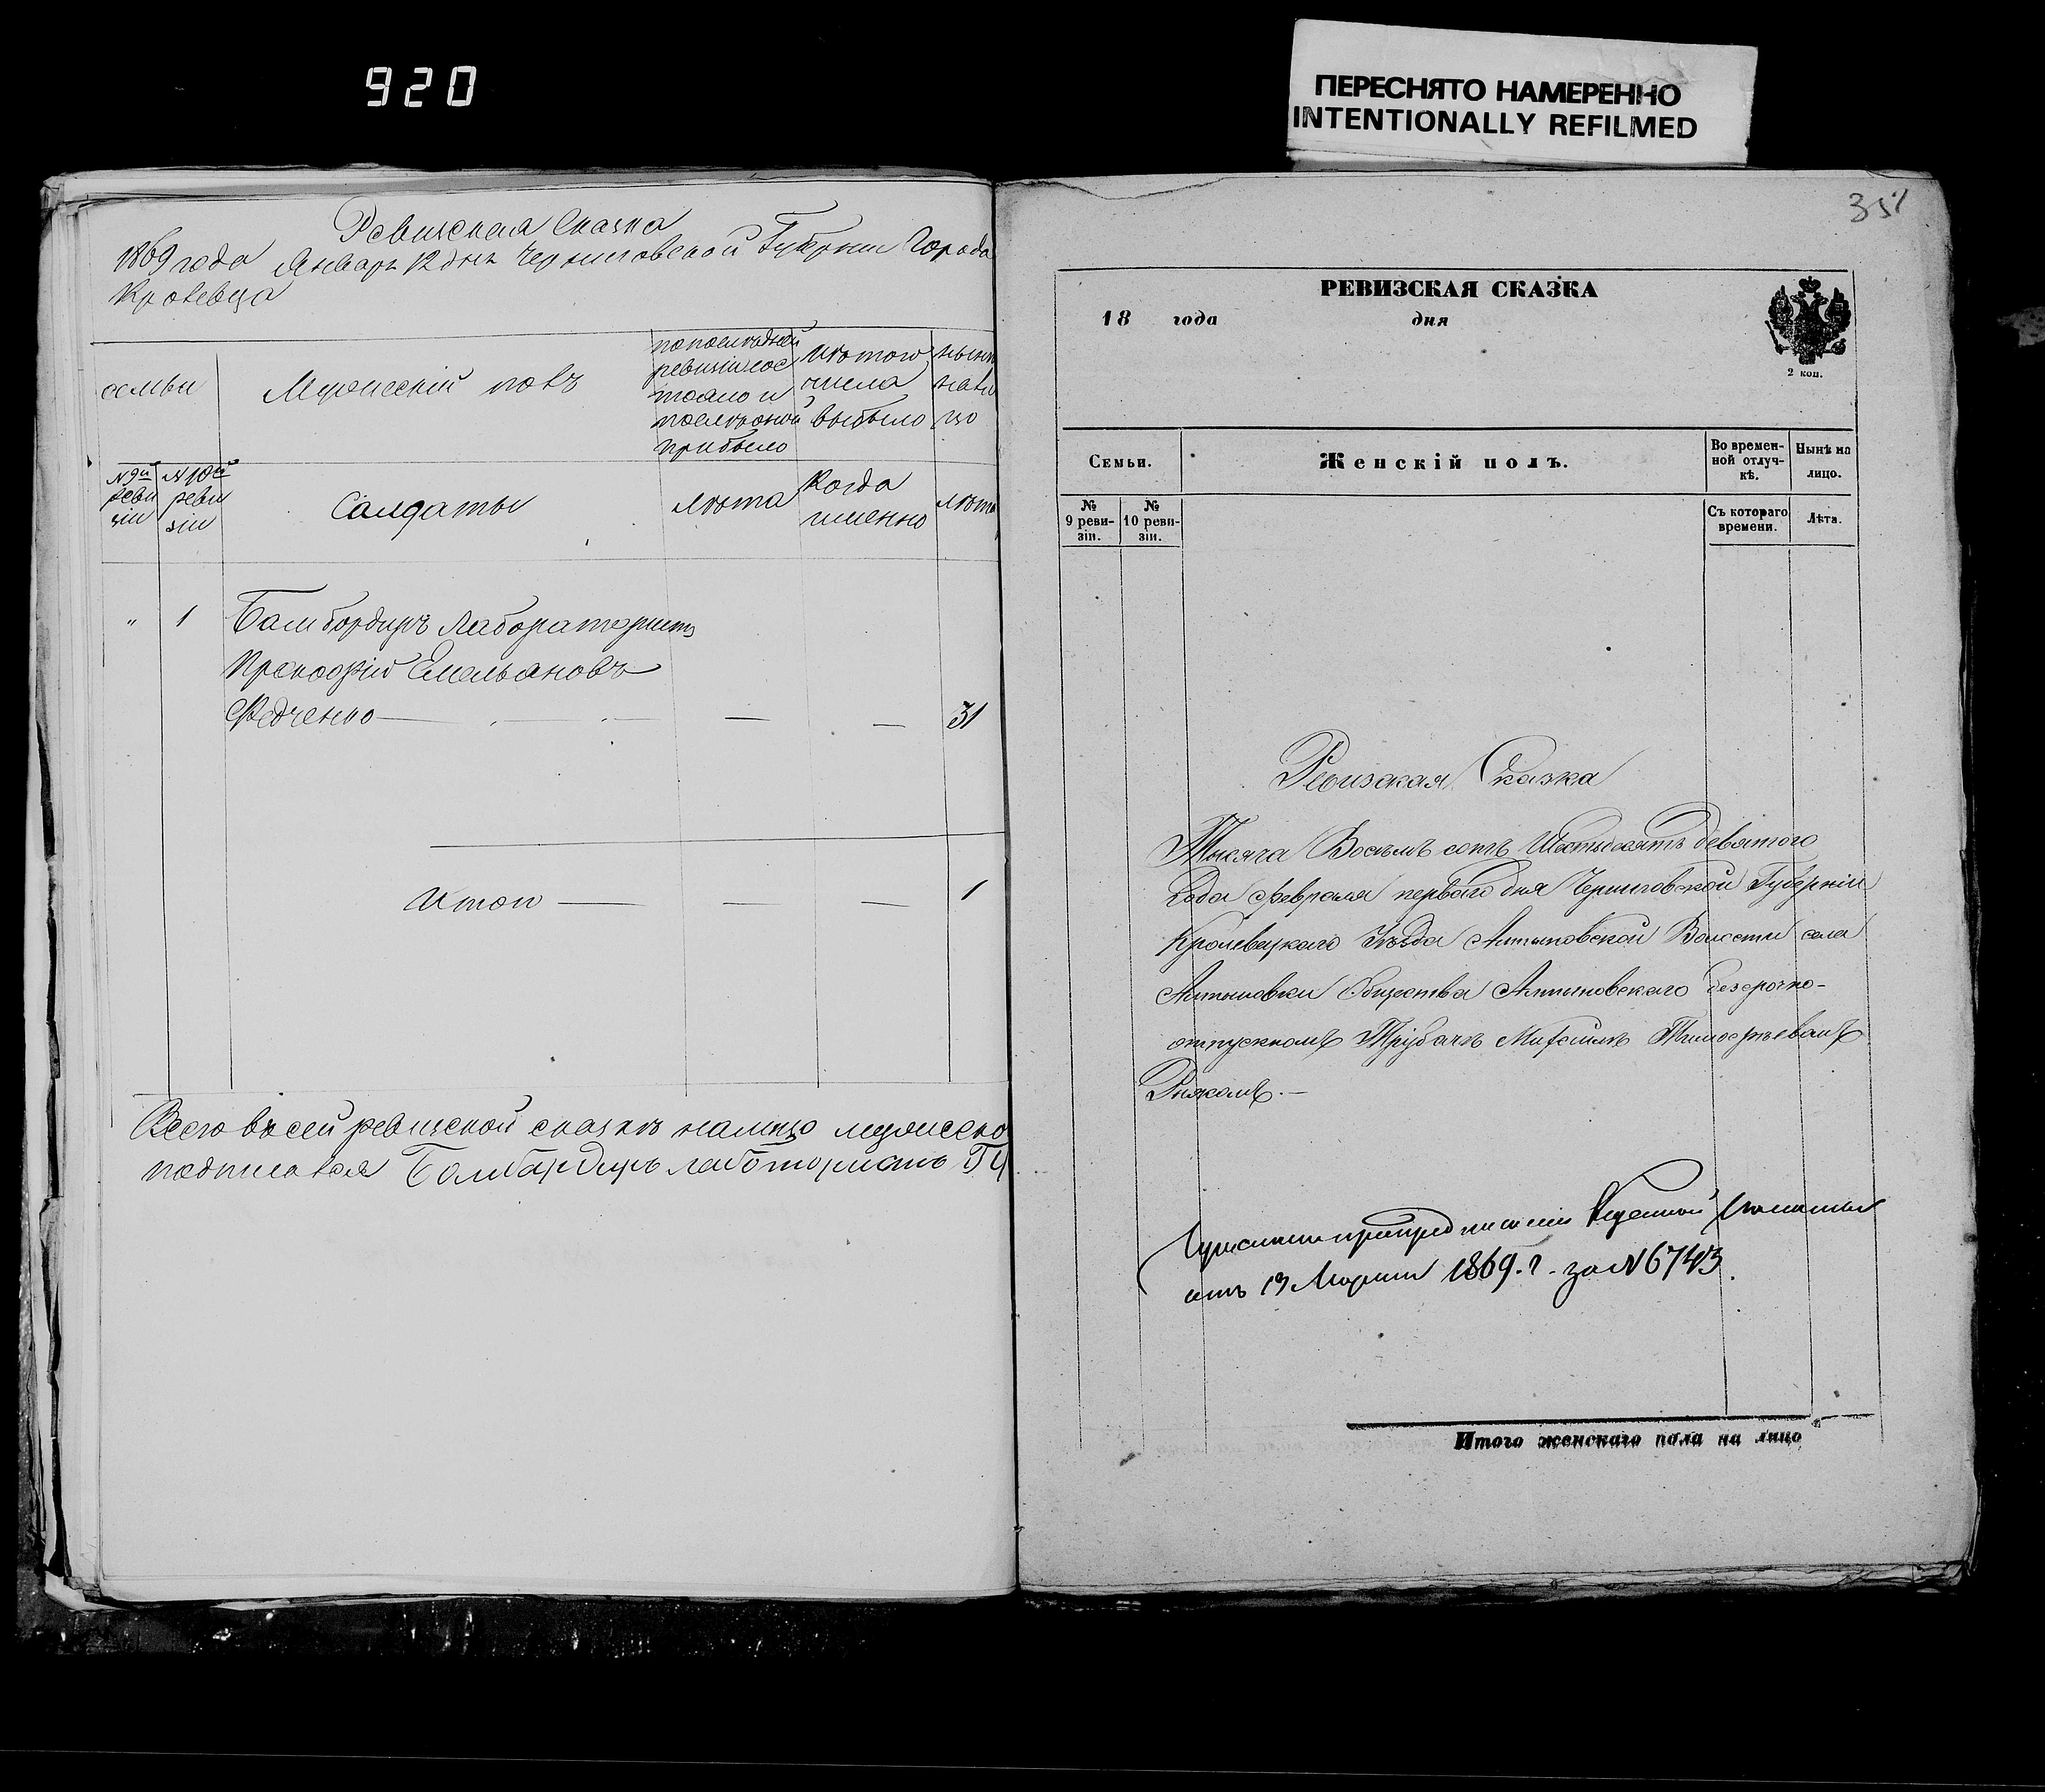 920
ПЕРЕСНЯТО НАМЕРЕННО
INTENTIONALLY REFILMED
Ревизская Сказка
1869 года Январь 12 дня Черниговской Губернии Города
Кролевца
семьи
Мужескій полъ
по последней
ревизіи сос
тояло и
после оной
прибыло
Из того
числа
выбыло
ныне
нали
цо
№ 9й
реви
зіи
№ 10й
реви
зіи
Салдаты
лета
Когда
именно
лета
" 1 Бомбордиръ Лабораторист
Прокофій Емельяновъ
Федченко — — — 31
Итого — — — 1
Всего в сей ревизской сказке налицо мужеско
подписался Бомбардиръ
351
РЕВИЗСКАЯ СКАЗКА
18 года дня
2 коп.
Семьи.
Женскій полъ.
Во времен-
ной отлуч-
кѣ.
Нынѣ на
лицо.
№
9 реви-
зіи.
№
10 реви-
зіи.
Съ котораго
времени.
Лѣта.
Ревизская Сказка
Тысяча Восемъ сотъ Шестьдесятъ девятого
Года Февраля первого дня Черниговской Губерніи
Кролевецкаго Уѣзда Алтыновской Волости села
Алтыновки Общества Алтыновскаго безсрочно-
отпускномъ Трубачѣ Михаилѣ Тимофѣевомъ
Казенной Палаты
отъ 13 Марта 1869 г. за № 6743.
Итого женскаго пола на лицо